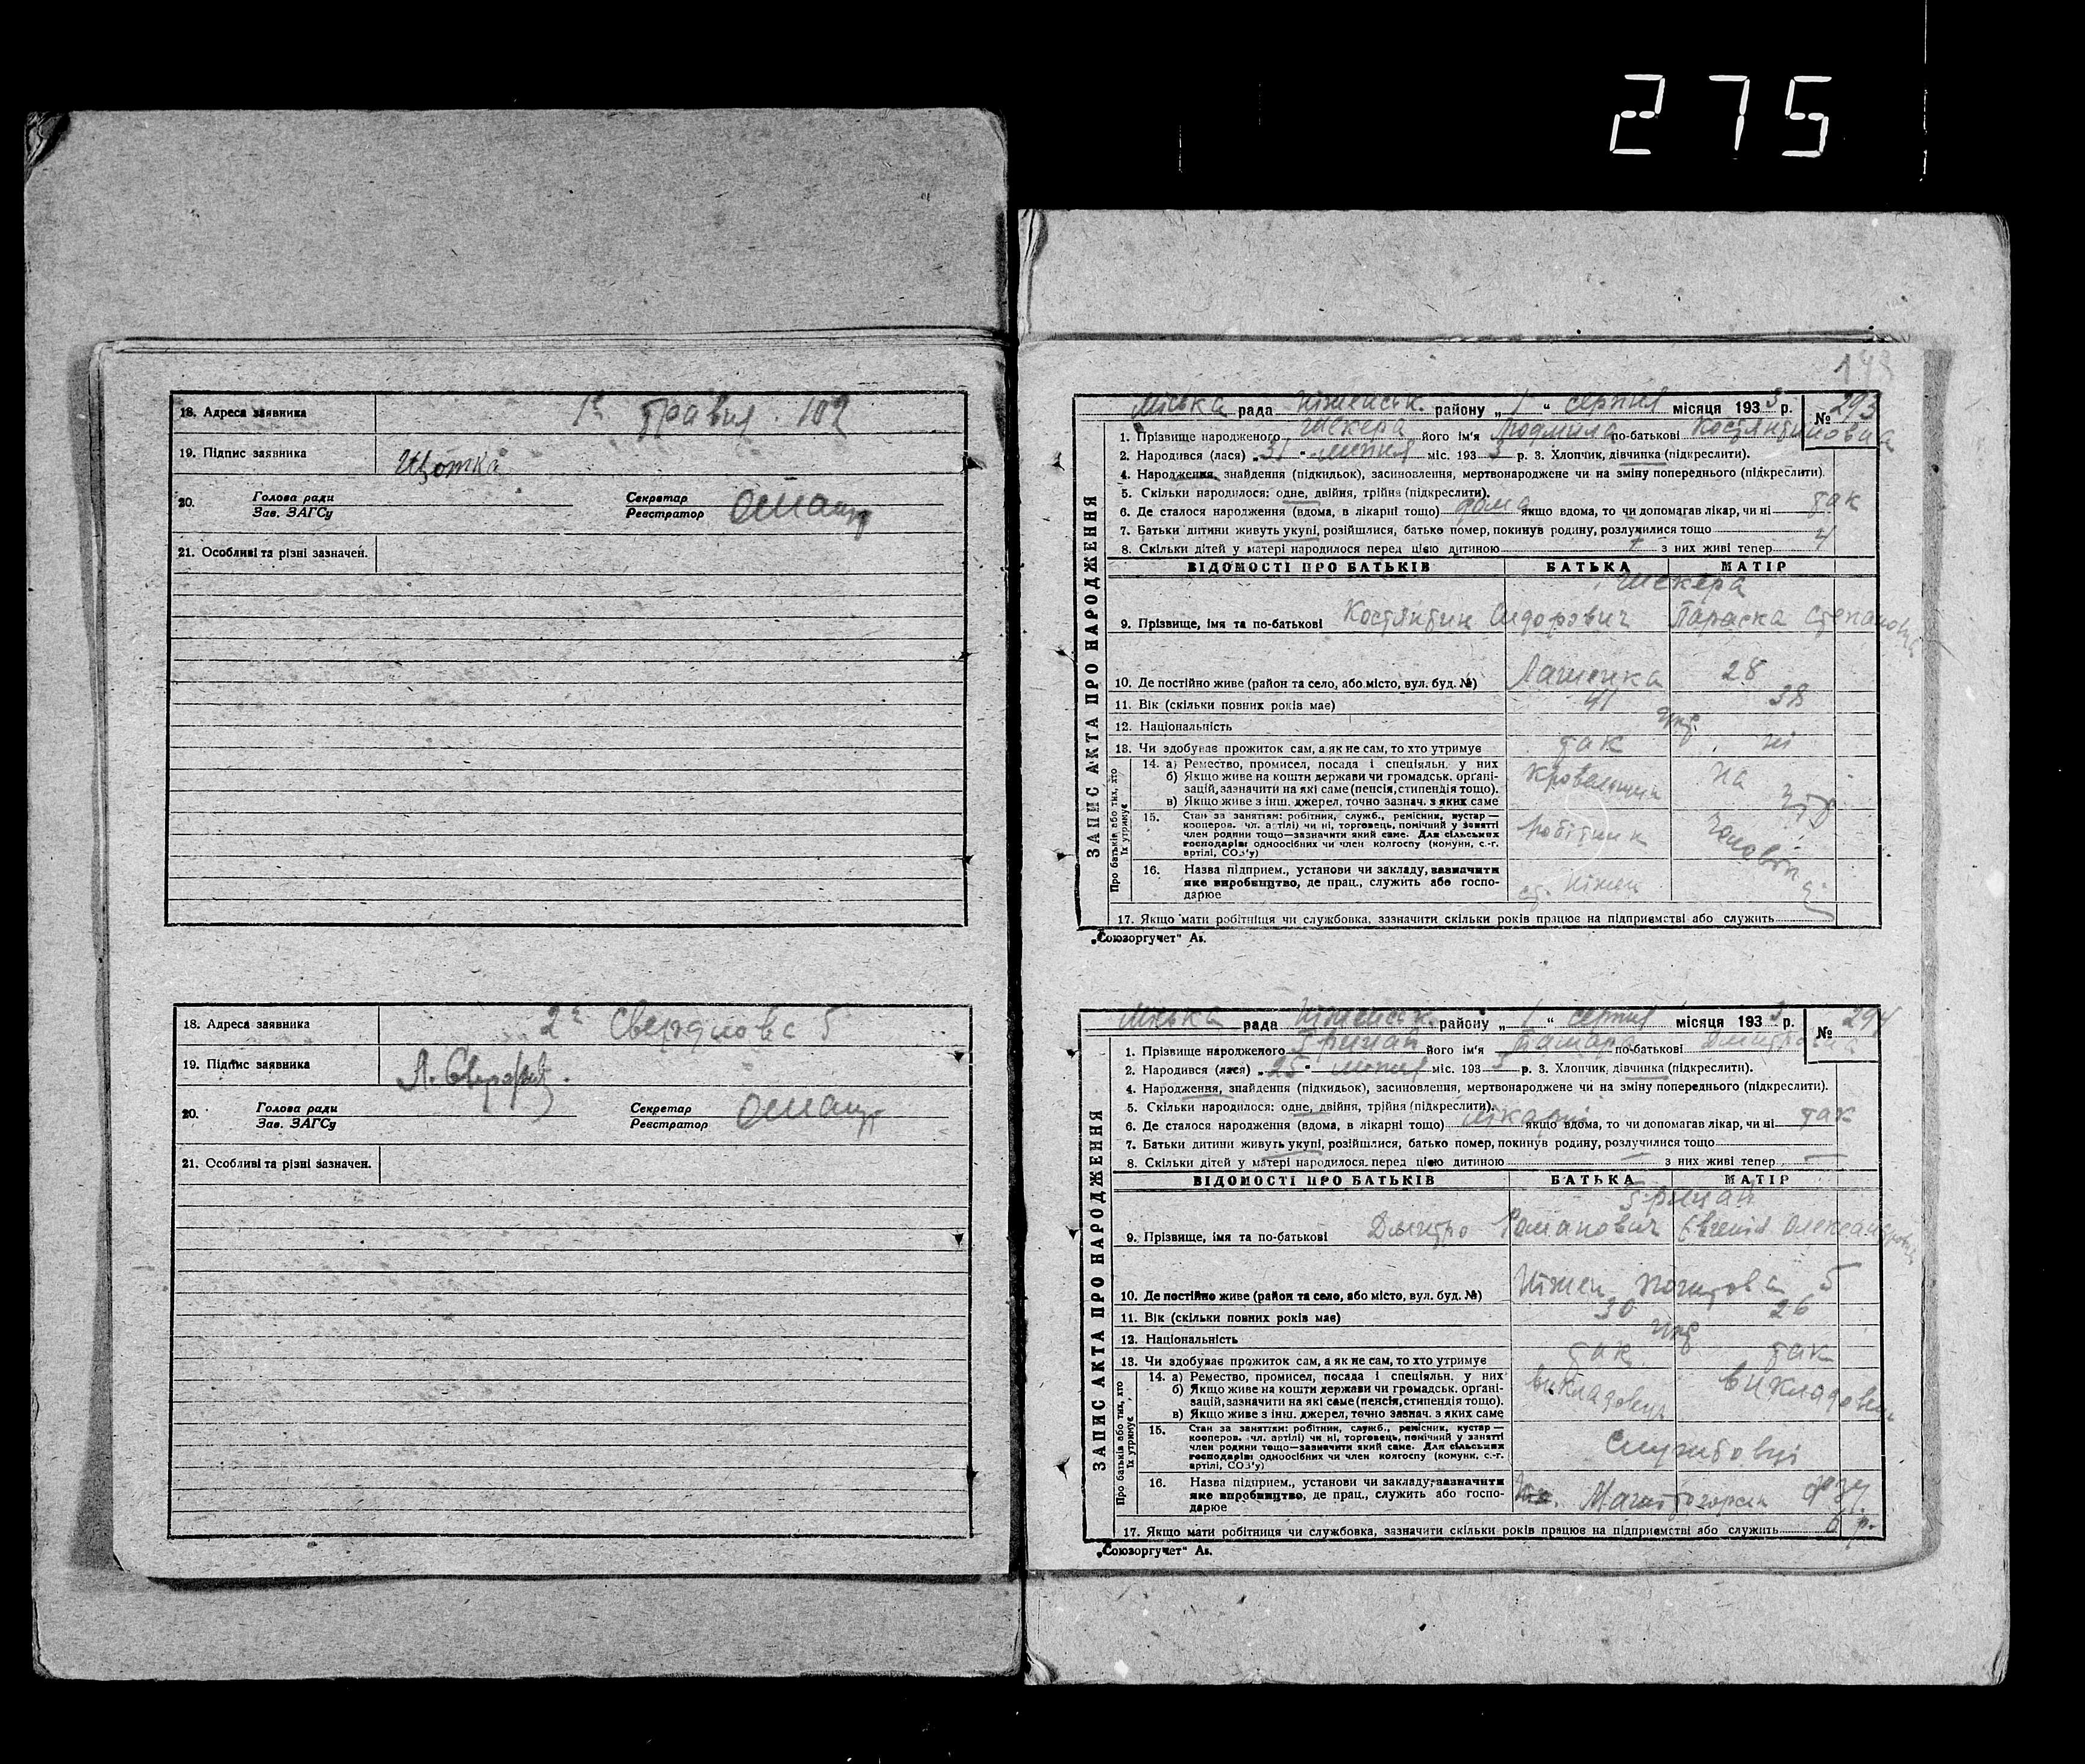 275
18. Адреса заявника 1е Травня 102
19. Підпис заявника Щотка
20. Голова ради
Зав. ЗАГСу
Секретар
Реєстратор
21. Особливі та різні зазначен.
18. Адреса заявника 2е Свердлова 5
19. Підпис заявника
20. Голова ради
Зав. ЗАГСу
Секретар
Реєстратор
21. Особливі та різні зазначен.
ЗАПИС АКТА ПРО НАРОДЖЕННЯ
Міська рада Ніженськ. району „1“ серпня місяця 1933 р. № 293
1. Прізвище народженого Шекера його ім'я Людмила по-батькові Костянтиновна
2. Народився (лася) „31“ липня міс. 1933 р. 3. Хлопчик, дівчинка (підкреслити).
4. Народження, знайдення (підкидьок), засиновлення, мертвонароджене чи на зміну попереднього (підкреслити).
5. Скільки народилося: одне, двійня, трійня (підкреслити).
6. Де сталося народження (вдома, в лікарні тощо) дома якщо вдома, то чи допомагав лікар, чи ні так
7. Батьки дитини живуть укупі, розійшлися, батько помер, покинув родину, розлучилися тощо
8. Скільки дітей у матері народилося перед цією дитиною з них живі тепер 4
ВІДОМОСТІ ПРО БАТЬКІВ БАТЬКА МАТІР
Шекера
9. Прізвище, імя та по-батькові Костянтин Сидорович Параска Степановна
10. Де постійно живе (район та село, або місто, вул. буд. №) 28
11. Вік (скільки повних років має) 41 38
12. Національність укр
13. Чи здобуває прожиток сам, а як не сам, то хто утримує так ні
Про батьків або тих, хто їх утримує
14. а) Ремество, промисел, посада і спеціяльн. у них
б) Якщо живе на кошти держави чи громадськ. органі-
зацій, зазначити на які саме (пенсія, стипендія тощо).
в) Якщо живе з інш. джерел, точно зазнач. з яких саме
кровельщик на утр
15. Стан за заняттям: робітник, служб., ремісник, кустар—
кооперов. чл. артілі) чи ні, торговець, помічний у занятті
член родини тощо—зазначити який саме. Для сільських
господарів: одноосібних чи член колгоспу (комуни, с.-г.
артілі, СОЗ'у)
робітник чоловіка
16. Назва підприєм., установи чи закладу, зазначити
яке виробництво, де прац., служить або госпо-
дарює
ст. Ніжен
17. Якщо мати робітниця чи службовка, зазначити скільки років працює на підприємстві або служить
„Союзоргучет“ А5.
ЗАПИС АКТА ПРО НАРОДЖЕННЯ
Міська рада Ніженськ. району „1“ серпня місяця 1933 р. № 294
1. Прізвище народженого Грицай його ім'я Тамара по-батькові Дмитровна
2. Народився (лася) „25“ липня міс. 193 р. 3. Хлопчик, дівчинка (підкреслити).
4. Народження, знайдення (підкидьок), засиновлення, мертвонароджене чи на зміну попереднього (підкреслити).
5. Скільки народилося: одне, двійня, трійня (підкреслити).
6. Де сталося народження (вдома, в лікарні тощо) лікарні якщо вдома, то чи допомагав лікар, чи ні так
7. Батьки дитини живуть укупі, розійшлися, батько помер, покинув родину, розлучилися тощо
8. Скільки дітей у матері народилося перед цією дитиною — з них живі тепер —
ВІДОМОСТІ ПРО БАТЬКІВ БАТЬКА МАТІР
Грицай
9. Прізвище, імя та по-батькові Дмитро Романович Євгенія Олександровна
10. Де постійно живе (район та село, або місто, вул. буд. №) Ніжен Почтова 5
11. Вік (скільки повних років має) 30 26
12. Національність укр
13. Чи здобуває прожиток сам, а як не сам, то хто утримує так так
Про батьків або тих, хто їх утримує
14. а) Ремество, промисел, посада і спеціяльн. у них
б) Якщо живе на кошти держави чи громадськ. органі-
зацій, зазначити на які саме (пенсія, стипендія тощо).
в) Якщо живе з інш. джерел, точно зазнач. з яких саме
викладовець викладовець
15. Стан за заняттям: робітник, служб., ремісник, кустар—
кооперов. чл. артілі) чи ні, торговець, помічний у занятті
член родини тощо—зазначити який саме. Для сільських
господарів: одноосібних чи член колгоспу (комуни, с.-г.
артілі, СОЗ'у)
службовці
16. Назва підприєм., установи чи закладу, зазначити
яке виробництво, де прац., служить або госпо-
дарюе
Магнітогорськ ФЗУ
17. Якщо мати робітниця чи службовка, зазначити скільки років працює на підприємстві або служить 6 р.
„Союзоргучет“ А5.